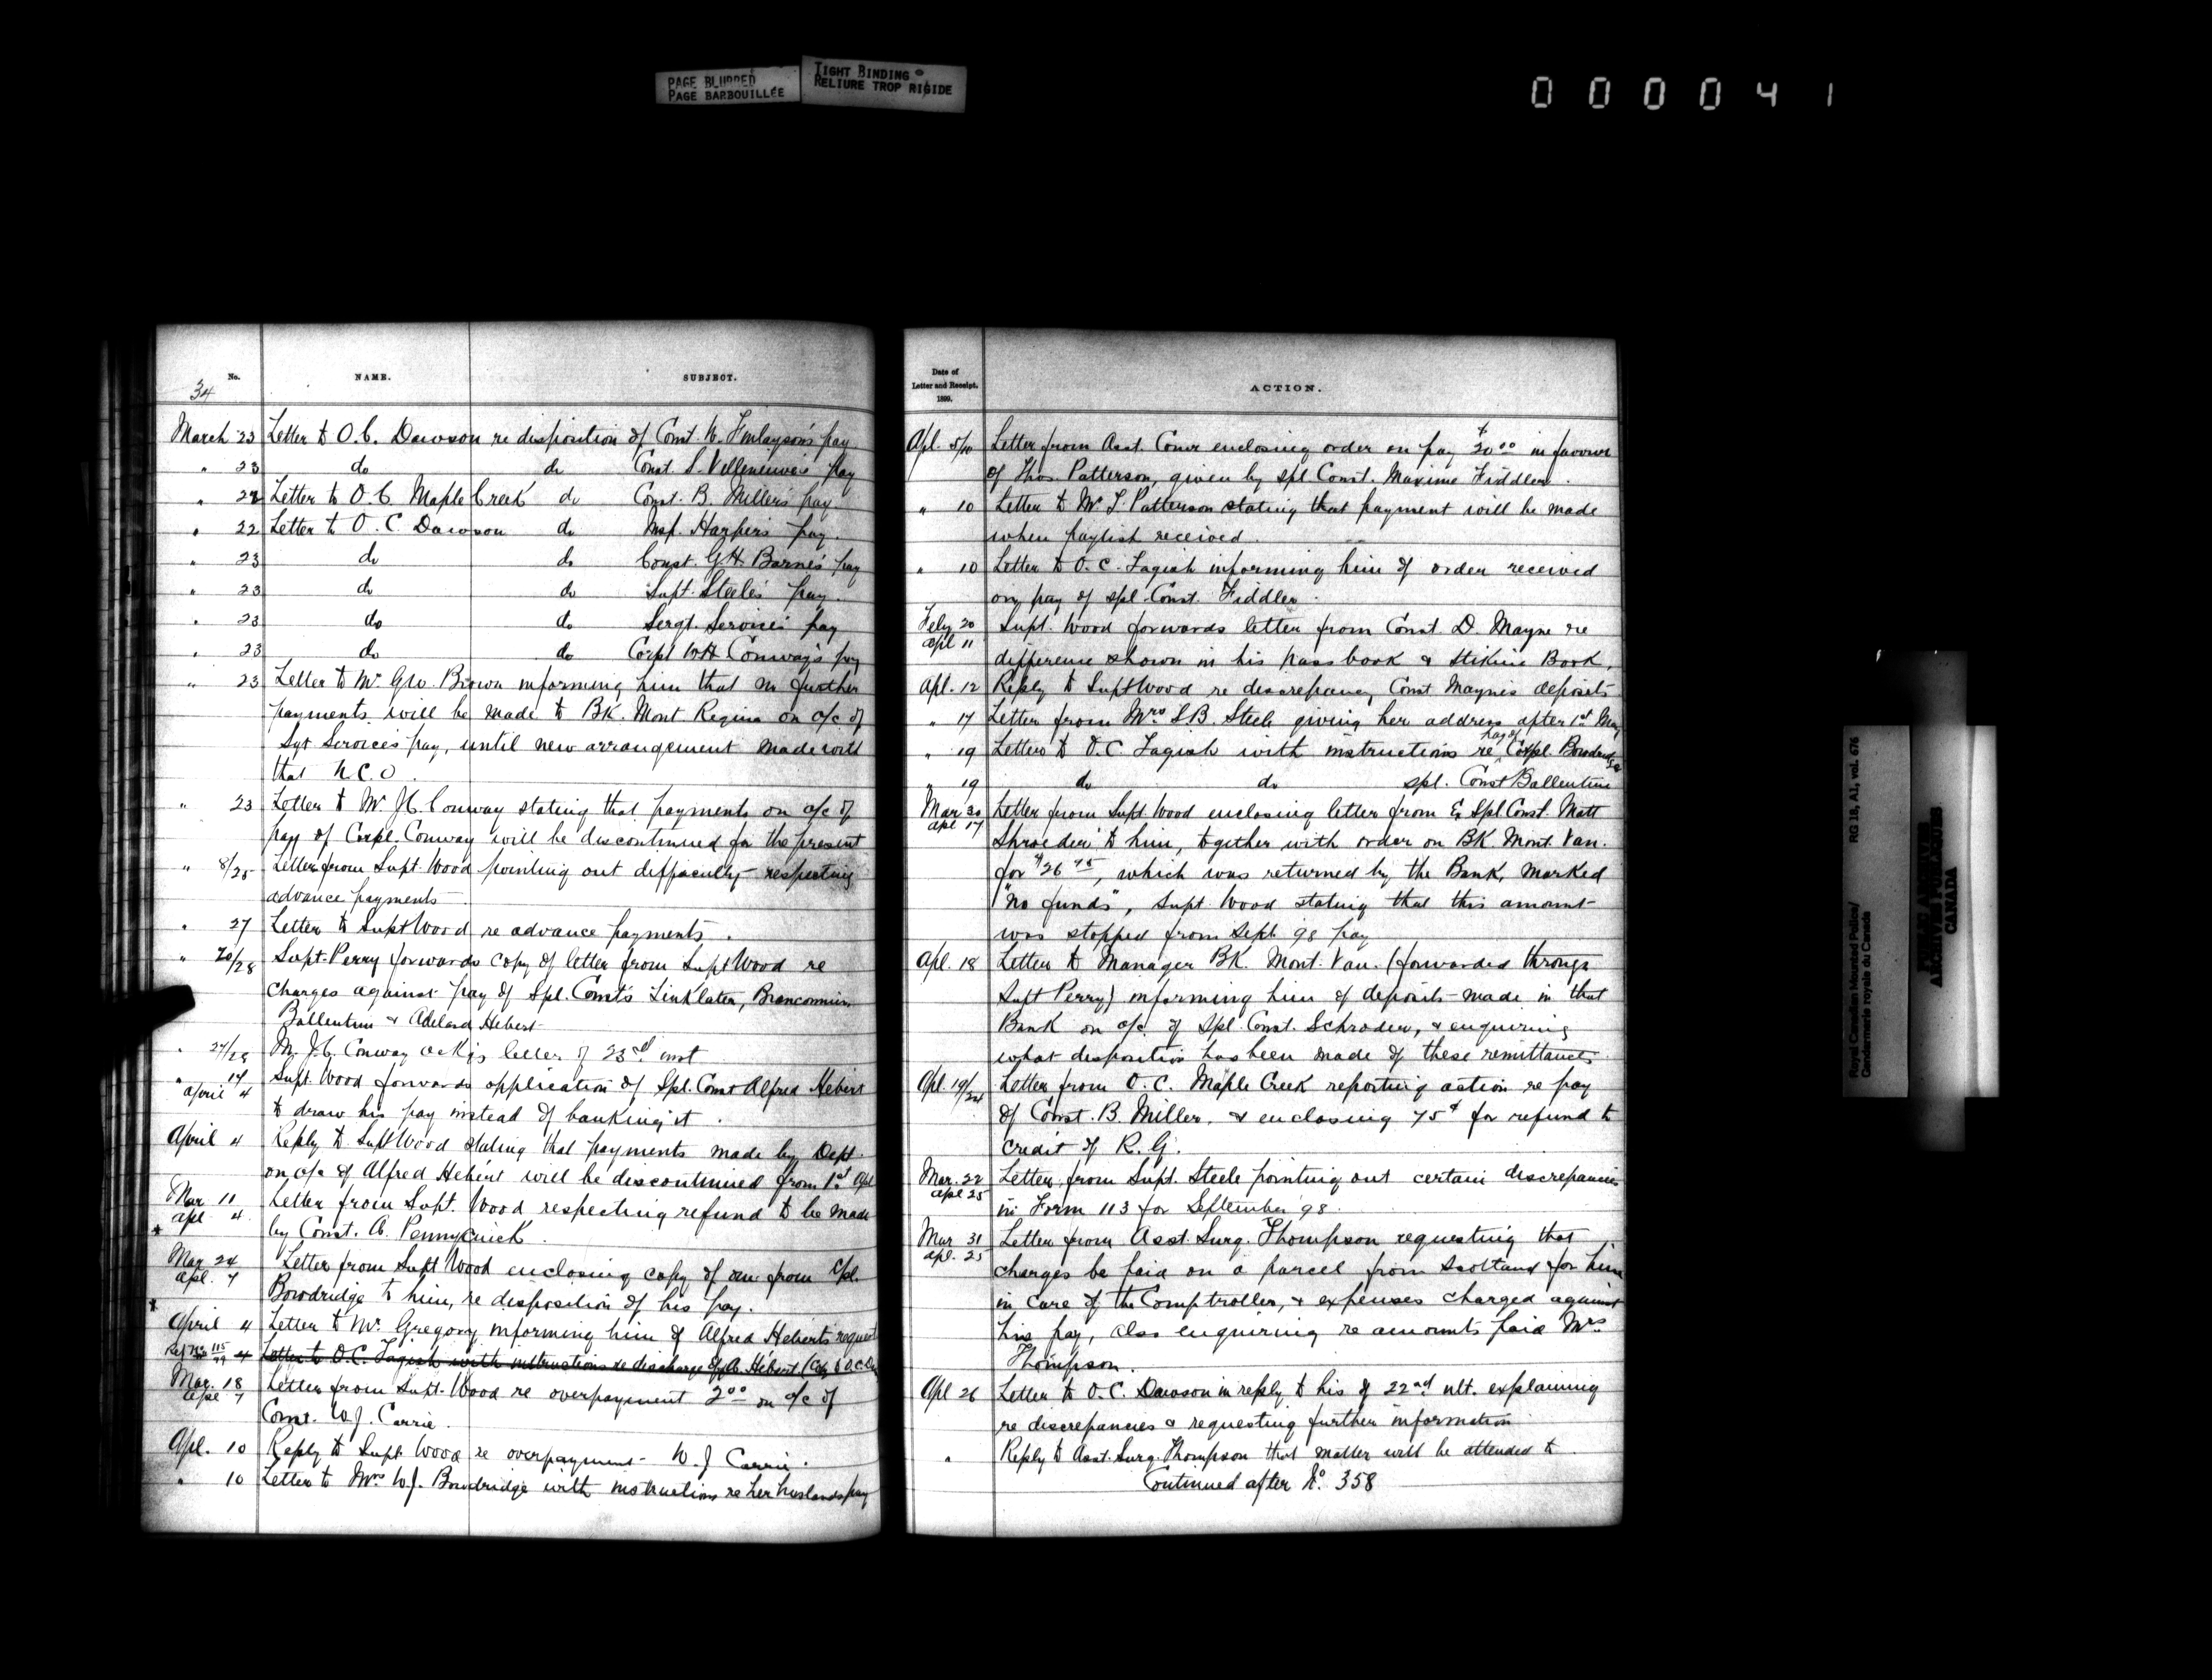 PAGE BLURRED
PAGE BARBOUILLÉE
TIGHT BINDING
RELIURE TROP RIGIDE
000041
34
No. NAME. SUBJECT.
March 23 Letter to O.C. Dawson re disposition of Const. N. Finlayson's pay
" 23 do do Const. S. Villeneuve's pay
" 22 Letter to O C Maple Creek do Const. B. Miller's pay.
" 22 Letter to O.C. Dawson do Insp. Harper's pay.
" 23 do do Const. G.H. Barne's pay
" 23 do do Supt. Steele's pay.
" 23 do do Sergt. Service's pay
" 23 do do Corpl W.H Conway's pay
" 23 Letter to Mr G.W. Brown informing him that no further
payments will be made to BK. Mont Regina on a/c of
Sgt Service's pay, until new arrangement made with
that N.C.O.
" 23 Letter to Mr J.C. Conway stating that payments on a/c of
pay of Corpl. Conway will be discontinued for the present
" 8/25 Letter from Supt Wood pointing out difficulty respecting
advance payments
" 27 Letter to Supt Wood re advance payments.
" 20/28 Supt. Perry forwards copy of letter from Supt Wood re
charges against pay of Spl. Const's Linklater,
Ballentine & Adelard Hebert
" 27/29 Mr J.C. Conway ack'g letter of 23rd inst
" 14 April 4 Supt. Wood forwards application of Spl. Const Alfred Hebert
to draw his pay instead of banking it.
April 4 Reply to Supt Wood stating that payments made by Dept.
on a/c of Alfred Hebert will be discontinued from 1st Apl
Mar 11 Apl 4 Letter from Supt. Wood respecting refund to be made
* by Const. A. Pennycuick.
Mar 24 Apl. 7 Letter from Supt Wood enclosing copy of one from Cpl.
Bowdridge to him, re disposition of his pay.
*
April 4 Letter to Mr. Gregory informing him of Alfred Hebert's request
4 Letter to O.C. Tagish with instructions re discharge of A. Hebert
Mar. 18 Apl 7 Letter from Supt. Wood re overpayment 2 00 on a/c of
Const. W.J. Carrie.
Apl. 10 Reply to Supt Wood re overpayment W.J Carrie.
" 10 Letter to Mrs W.J. Bowdridge with instructions re her husband's pay
Date of
Letter and Receipt.
1899.
ACTION.
Apl. 5/10 Letter from Asst. Comr enclosing order on pay $20 00 in favour
of Thos. Patterson, given by Spl Const. Maxime Fiddler.
" 10 Letter to Mr T. Patterson stating that payment will be made
when paylist received.
" 10 Letter to O.C. Tagish informing him of order received
on pay of Spl Const. Fiddler.
Feby 20 Apl 11 Supt. Wood forwards letter from Const. D. Mayne re
difference shown in his pass book & Stikine Book.
Apl. 12 Reply to Supt Wood re discrepancy Const Mayne's deposits
" 17 Letter from Mrs S.B. Steele giving her address after 1st May
" 19 Letter to O.C. Tagish with instructions re pay of Corpl. Bowdridge
" 19 do do spl. Const Ballentine
Mar 30 Apl 17 Letter from Supt Wood enclosing letter from Ex Spl Const. Matt
Shroeder to him, together with order on BK. Mont. Van.
for $26 75, which was returned by the Bank, marked
"No funds", Supt Wood stating that this amount
was stopped from Sept 98 pay
Apl. 18 Letter to Manager BK. Mont. Van. (forwarded through
Supt Perry) informing him of deposits made in that
Bank on a/c of Spl. Const. Schroder, & enquiring
what disposition has been made of these remittances
Apl. 19/24 Letter from O.C. Maple Creek reporting action re pay
of Const. B. Miller, & enclosing 75¢ for refund to
credit of R.G.
Mar. 22 Apl 25 Letter from Supt. Steele pointing out certain discrepancies
in Form 113 for September '98.
Mar 31 Apl. 25 Letter from Asst. Surg. Thompson requesting that
charges be paid on a parcel from Scotland for him
in care of the Comptroller, & expenses charged against
his pay, also enquiring re amounts paid Mrs
Thompson.
Apl 26 Letter to O.C. Dawson in reply to his of 22nd ult. explaining
re discrepancies & requesting further information
" Reply to Asst. Surg. Thompson that matter will be attended to.
Continued after No. 358
Royal Canadian Mounted Police/ RG 18, A1, vol. 676
Gendarmerie royale du Canada
PUBLIC ARCHIVES
ARCHIVES PUBLIQUES
CANADA